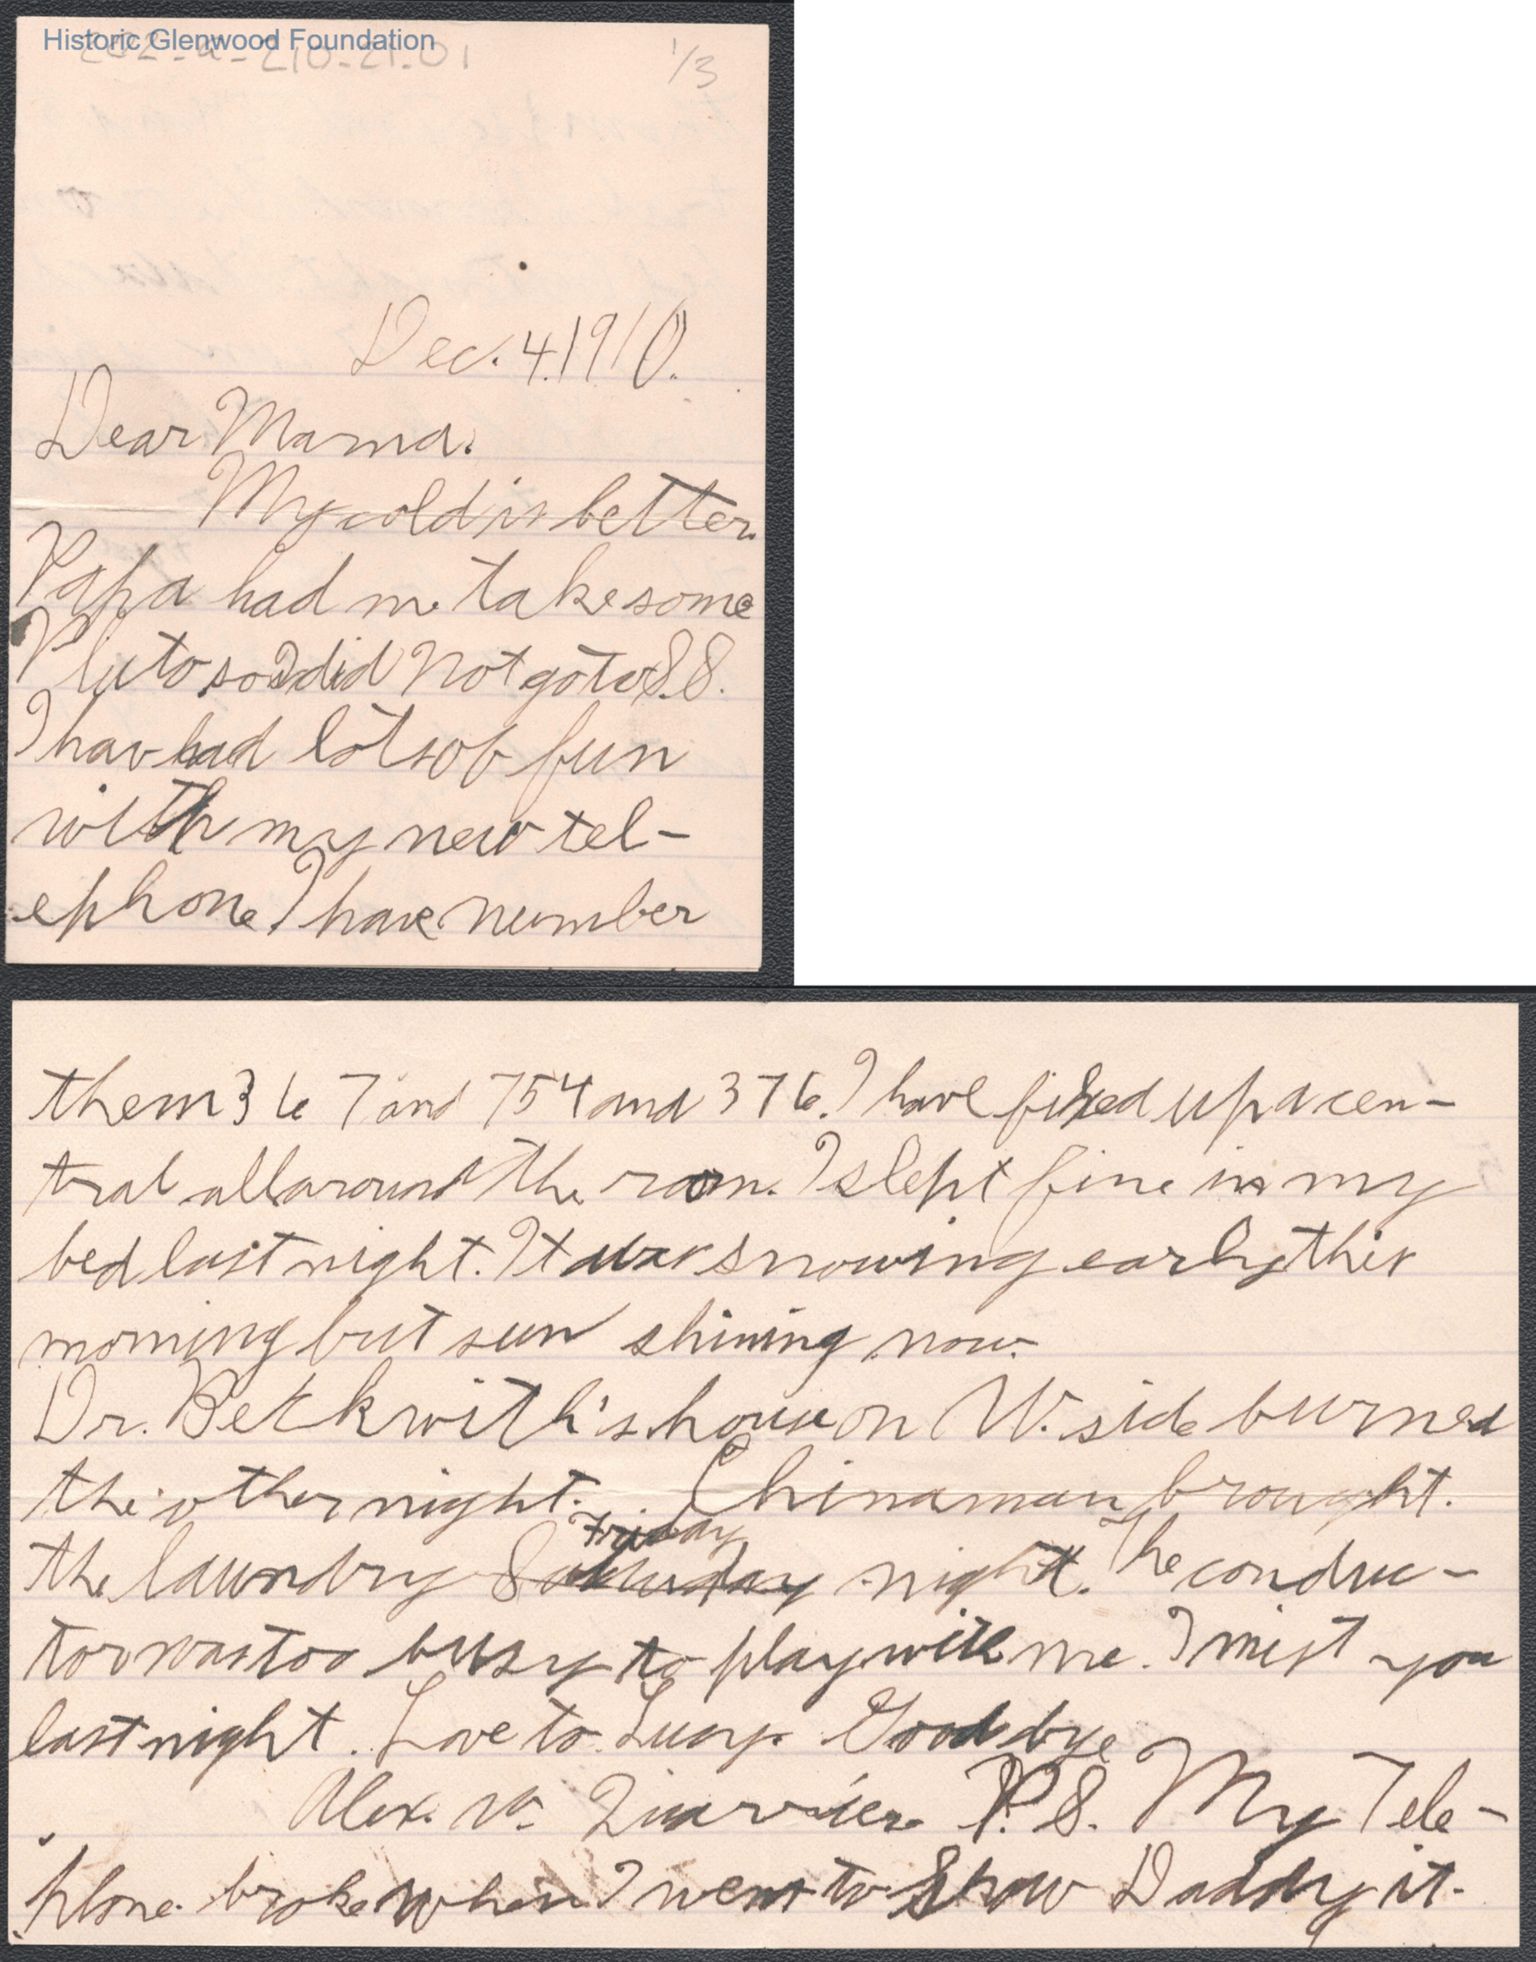 Historic Glenwood Foundation
202-a-210-21-01
1/3
Dec. 4. 1910.
Dear Mama.
My cold is better.
Papa had me take some
Pluto so I did not go to S.S.
I hav had lots of fun
with my new tel-
ephone. I have number
them 3 6 7 and 754 and 376. I have fixed up a cen-
tral all around the room. I slept fine in my
bed last night. It was snowing early this
morning but sun shining now.
Dr. Beckwith's house on W. side burned
the other night. Chinaman brought.
Friday
the laundry Saturday night. The conduc-
tor was too busy to play with me. I mist you
last night. Love to Lucy. Good bye
Alex. W. P.S. My Tele-
phone broke when I went to show Daddy it.